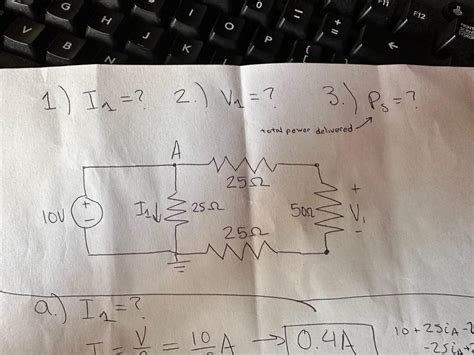 1.) I₁=? 2.) V₁=? 3.) Pₛ=?
total power delivered
A
25Ω
10V + - I₁↓ 25Ω 50Ω + V₁ -
25Ω
a.) I₁=?
I = V = 10 A → 0.4A
10+25iA-2
-25i